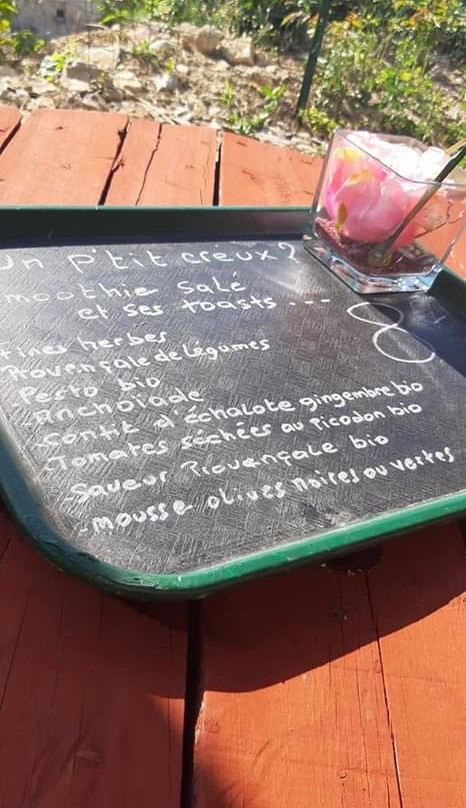 Un p'tit creux ?
moothie salé
et ses toasts ---
8
Fines herbes
Provençale de légumes
Pesto bio
Anchoiade
confit d'échalote gingembre bio
Tomates séchées au Picodon bio
Saveur Provençale bio
mousse olives noires ou vertes